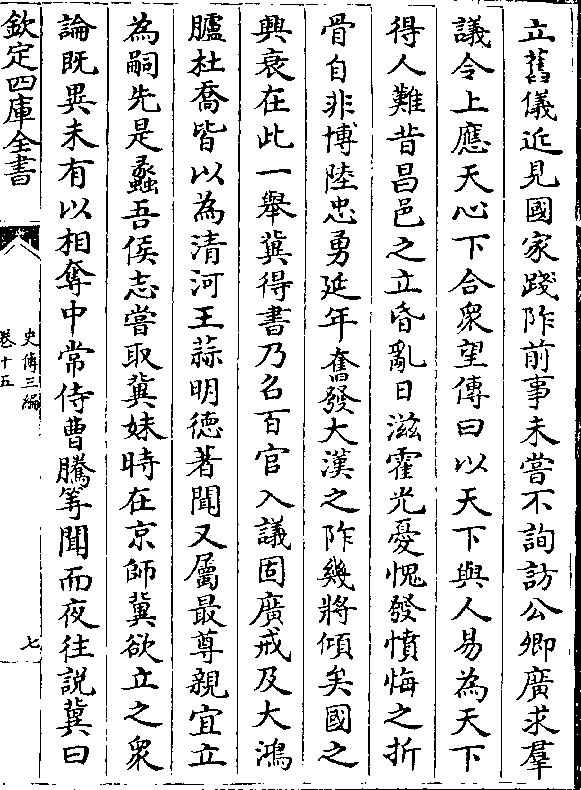 立舊儀近見國家踐阼前事未嘗不詢訪公卿廣求羣
議令上應天心下合衆望傳曰以天下與人易為天下
得人難昔昌邑之立昏亂日滋霍光憂愧發憤悔之折
骨自非博陸忠勇延年奮發大漢之阼幾將傾矣國之
興衰在此一舉冀得書乃名百官入議固廣戒及大鴻
臚杜喬皆以為清河王蒜明德著聞又屬最尊親宜立
為嗣先是蠡吾侯志嘗取冀妹時在京師冀欲立之衆
論既異未有以相奪中常侍曹騰等聞而夜往説冀曰
欽定四庫全書
史傳三編
卷十五
七